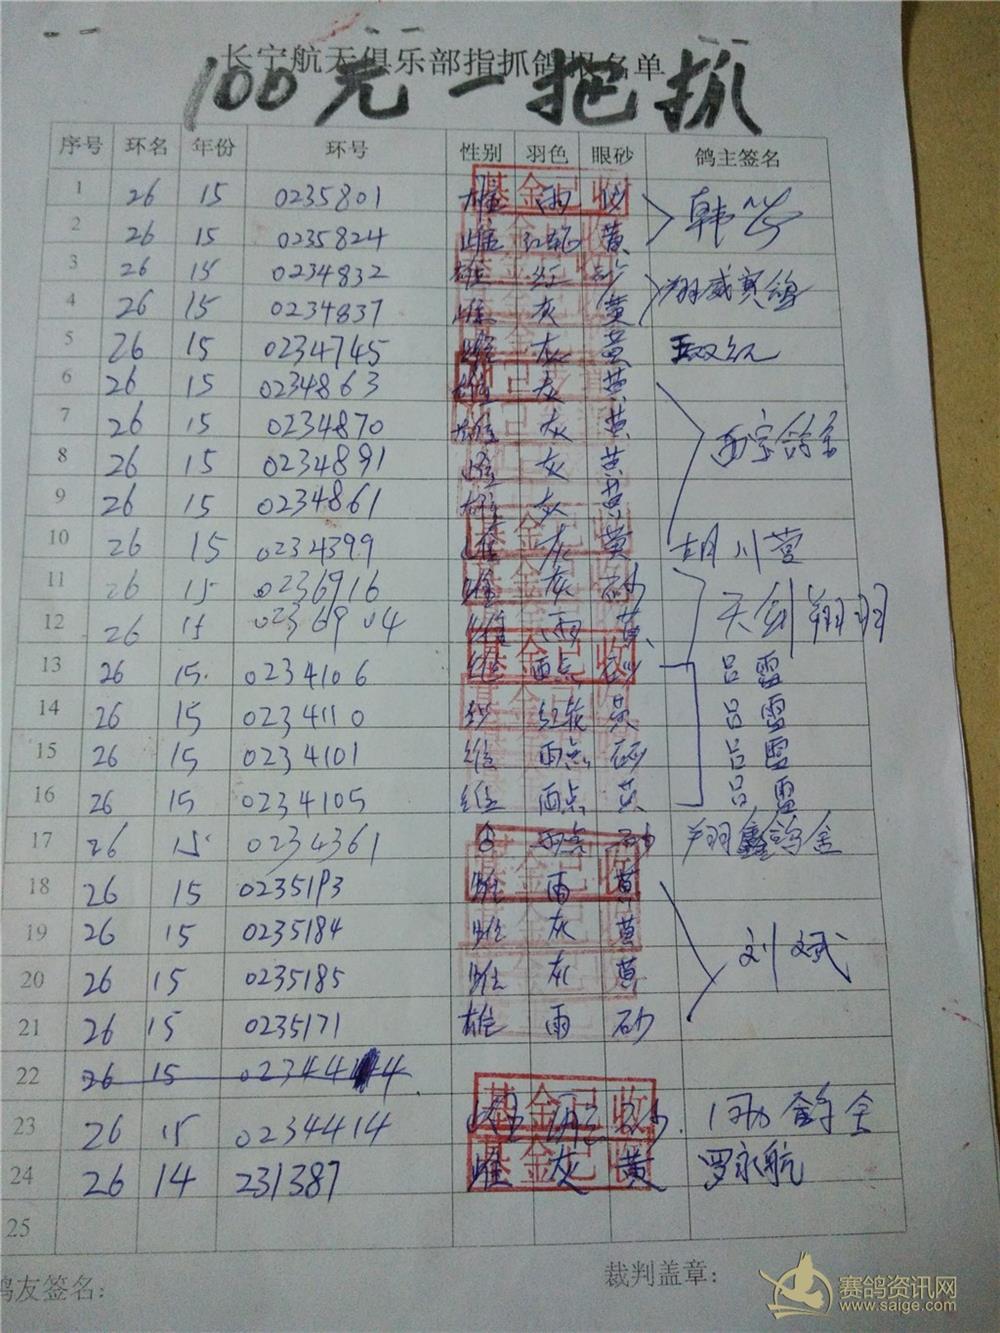 长宁航天俱乐部指抓鸽报名单
100元一把抓
序号 环名 年份 环号 性别 羽色 眼砂 鸽主签名
1 26 15 0235801 雄 雨 砂 韩
2 26 15 0235824 雌 红轮 黄
3 26 15 0234832 雄 红 砂 翔威赛鸽
4 26 15 0234837 雌 灰 黄
5 26 15 0234745 雌 灰 黄
6 26 15 0234863 雄 灰 黄
7 26 15 0234870 雄 灰 黄 西宗鸽舍
8 26 15 0234891 雌 灰 黄
9 26 15 0234861 雄 灰 黄
10 26 15 0234399 雄 灰 黄 胡川营
11 26 15 0236916 雌 灰 砂 天剑翔羽
12 26 15 0236904 雄 雨 黄
13 26 15 0234106 雄 雨点 砂 吕雷
14 26 15 0234110 红轮 黄 吕雷
15 26 15 0234101 雄 雨点 砂 吕雷
16 26 15 0234105 雄 雨点 黄 吕雷
17 26 15 0234361 雨点 砂 翔鑫鸽舍
18 26 15 0235193 雌 雨 黄
19 26 15 0235184 雌 灰 黄 刘斌
20 26 15 0235185 雌 灰 黄
21 26 15 0235171 雄 雨 砂
22 26 15 02344 4
23 26 15 0234414 雨点 砂 鸽舍
24 26 14 231387 雌 灰 黄 罗永航
25
基金已收
鸽友签名： 裁判盖章：
赛鸽资讯网
www.saige.com